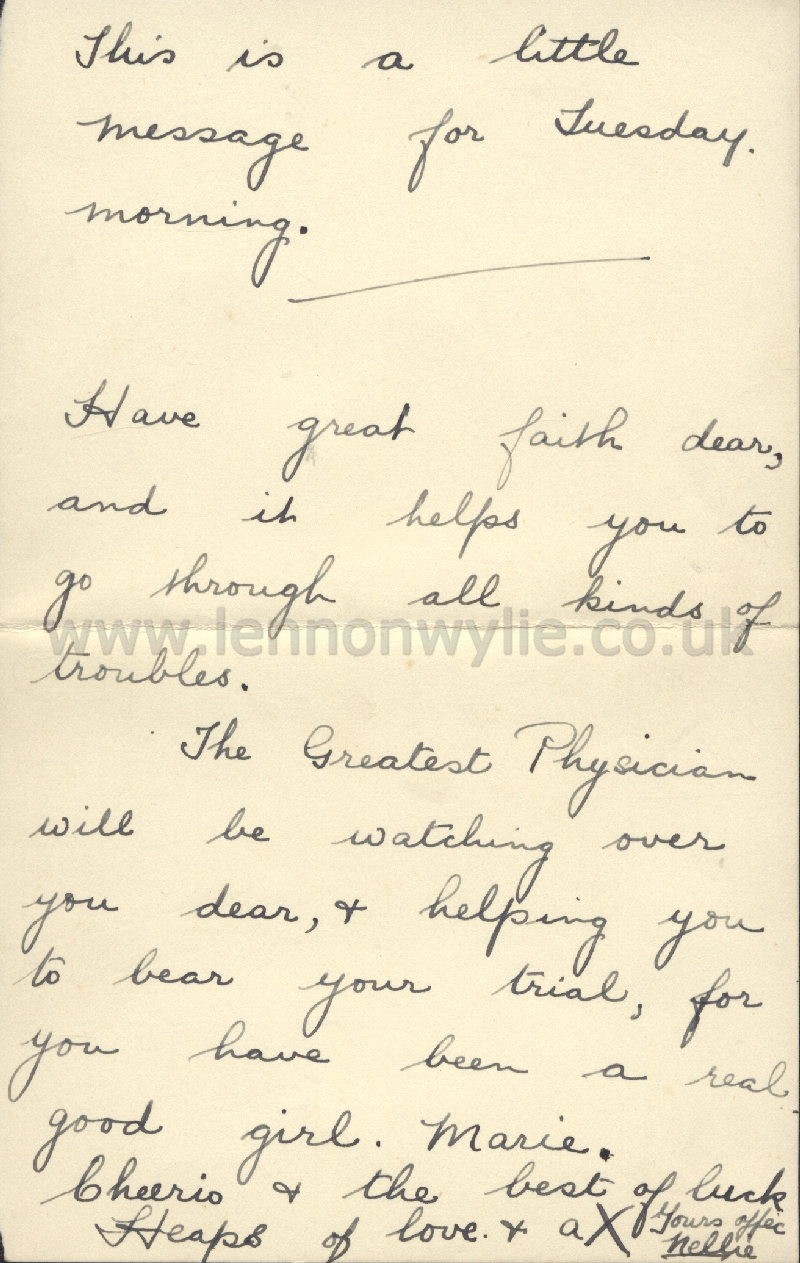 This is a little
message for Tuesday.
morning.
Have great faith dear,
and it helps you to
go through all kinds of
www.lennonwylie.co.uk
troubles.
The Greatest Physician
will be watching over
you dear, & helping you
to bear your trial, for
you have been a real
good girl. Marie.
Cheerio & the best of luck
Heaps of love. & a X
Yours affec
Nellie